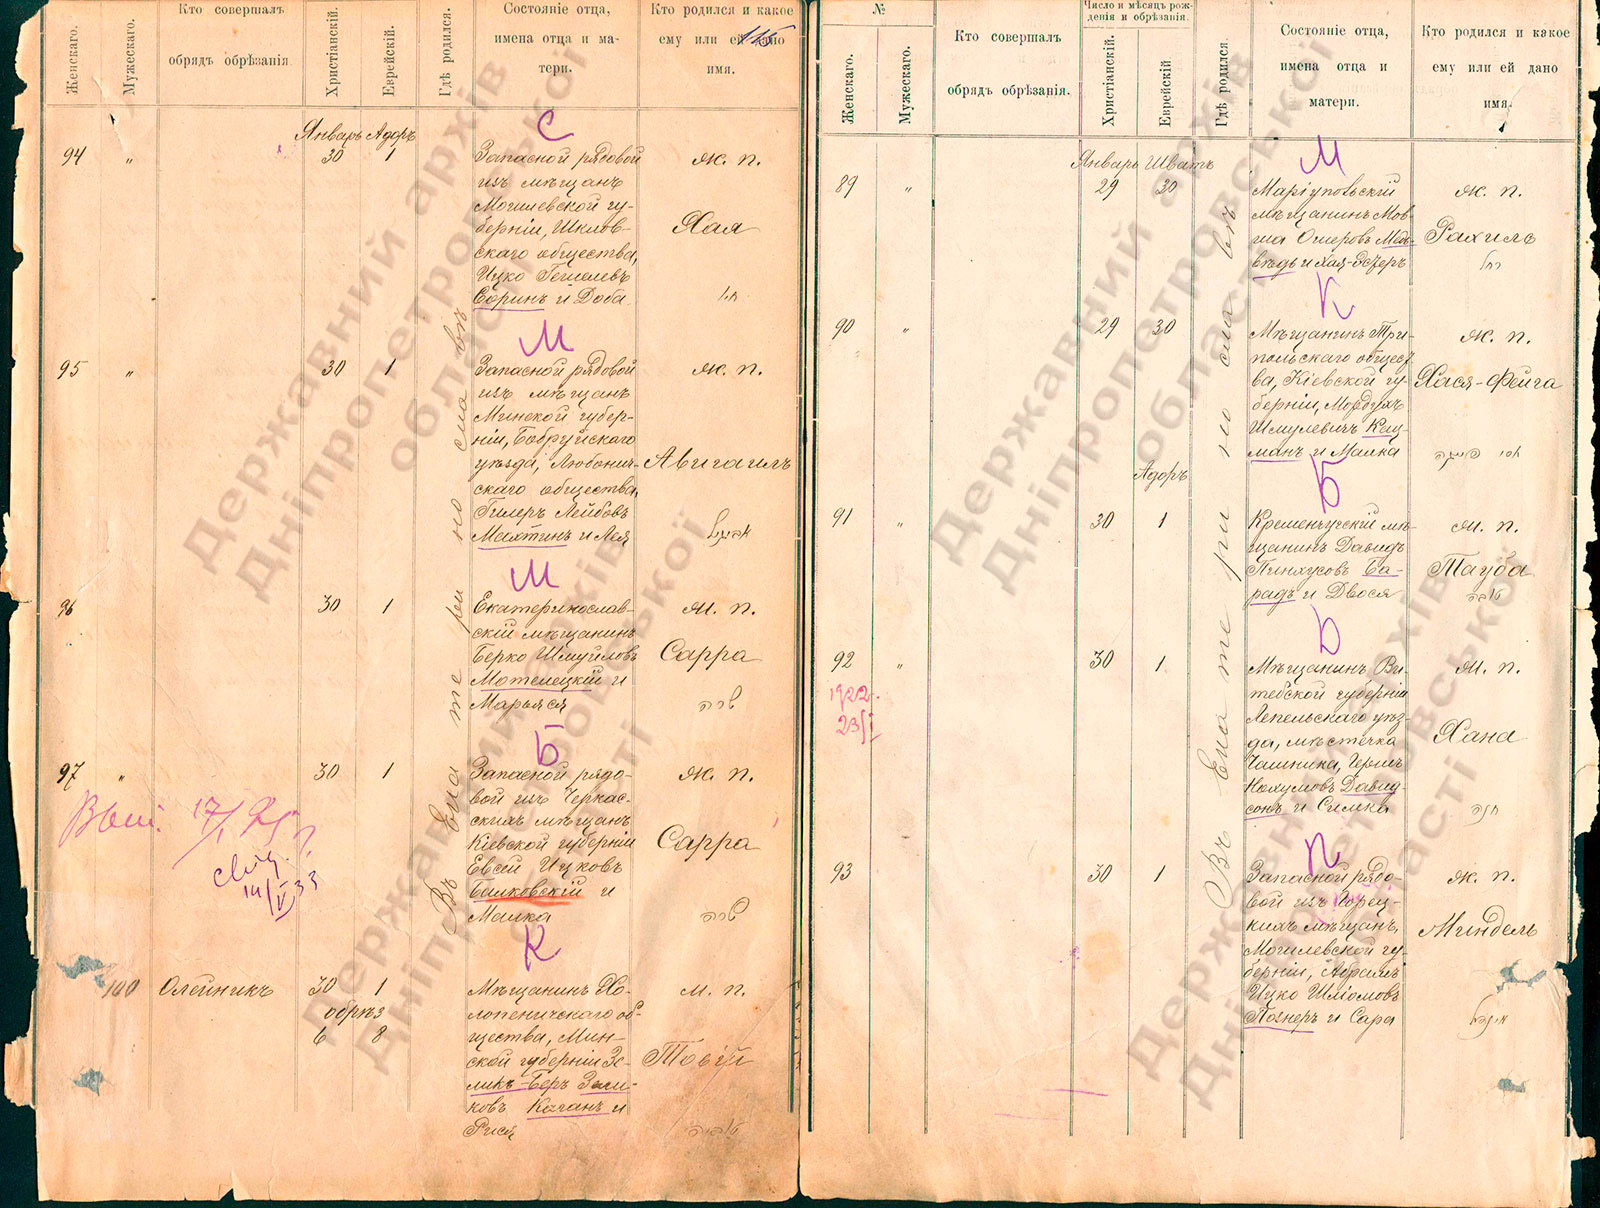 Кто совершалъ
обрядъ обрѣзанія
Женскаго.
Мужескаго.
Христіанскій.
Еврейскій.
Гдѣ родился.
Состояніе отца,
имена отца и ма-
тери.
Кто родился и какое
ему или ей дано
имя.
Январь Адоръ
С
94 " 30 1
Запасной рядовой
изъ мѣщанъ
Могилевской гу-
берніи, Шклов-
скаго общества,
Ицко
Соринъ и Доба
ж. п.
Хая
חיה
М
95 " 30 1
Запасной рядовой
изъ мѣщанъ
Минской губер-
ніи, Бобруйскаго
уѣзда, Любонич-
скаго общества,
Гилеръ Лейбовъ
Махтинъ и Лея
ж. п.
Авигаилъ
אביגיל
М
96 30 1
Екатеринослав-
скій мѣщанинъ
Берко Шмуйловъ
Мотелецкій и
Марьяся
ж. п.
Сарра
שרה
Б
97 " 30 1
Запасной рядо-
вой изъ Черкас-
скихъ мѣщанъ
Кіевской губерніи
Евсей Ицковъ
Балковскій и
Малка
ж. п.
Сарра
שרה
14/V 33
К
100 Олейникъ 30 1
обрѣз
6 8
Мѣщанинъ Хо-
лопеничскаго об-
щества, Мин-
ской губерніи Зе-
ликъ-Беръ Зели-
ковъ Каганъ и
Рися
м. п.
Товій
טוביה
Въ Екатеринославѣ
№
Женскаго.
Мужескаго.
Кто совершалъ
обрядъ обрѣзанія.
Число и мѣсяцъ рож-
денія и обрѣзанія.
Христіанскій.
Еврейскій
Гдѣ родился.
Состояніе отца,
имена отца и
матери.
Кто родился и какое
ему или ей дано
имя.
Январь Шватъ
М
89 " 29 30
Маріупольскій
мѣщанинъ Мов-
ша Омеровъ Медъ-
вѣдь и Хая-Эстеръ
ж. п.
Рахиль
רחל
К
90 " 29 30
Мѣщанинъ Три-
польскаго общест-
ва, Кіевской гу-
берніи, Мордухъ
Шмулевичъ Кац-
манъ и Малка
ж. п.
Хася-Фейга
חסי פייגה
Адоръ
Б
91 " 30 1
Кременчугскій мѣ-
щанинъ Давидъ
Пинхусовъ Ба-
радъ и Двося
ж. п.
Тауба
טובה
92 " 30 1
1922
23/I
Мѣщанинъ Ви-
тебской губерніи
Лепельскаго уѣз-
да, мѣстечка
Чашника, Гершъ
Нохумовъ Давид-
сонъ и Симка
ж. п.
Хана
חנה
П
93 30 1
Запасной рядо-
вой изъ Горец-
кихъ мѣщанъ,
Могилевской гу-
берніи, Абрамъ
Ицко Шліомовъ
Познеръ и Сара
ж. п.
Миндель
מינדל
Въ Екатеринославѣ
Державний архів
Дніпропетровської
області